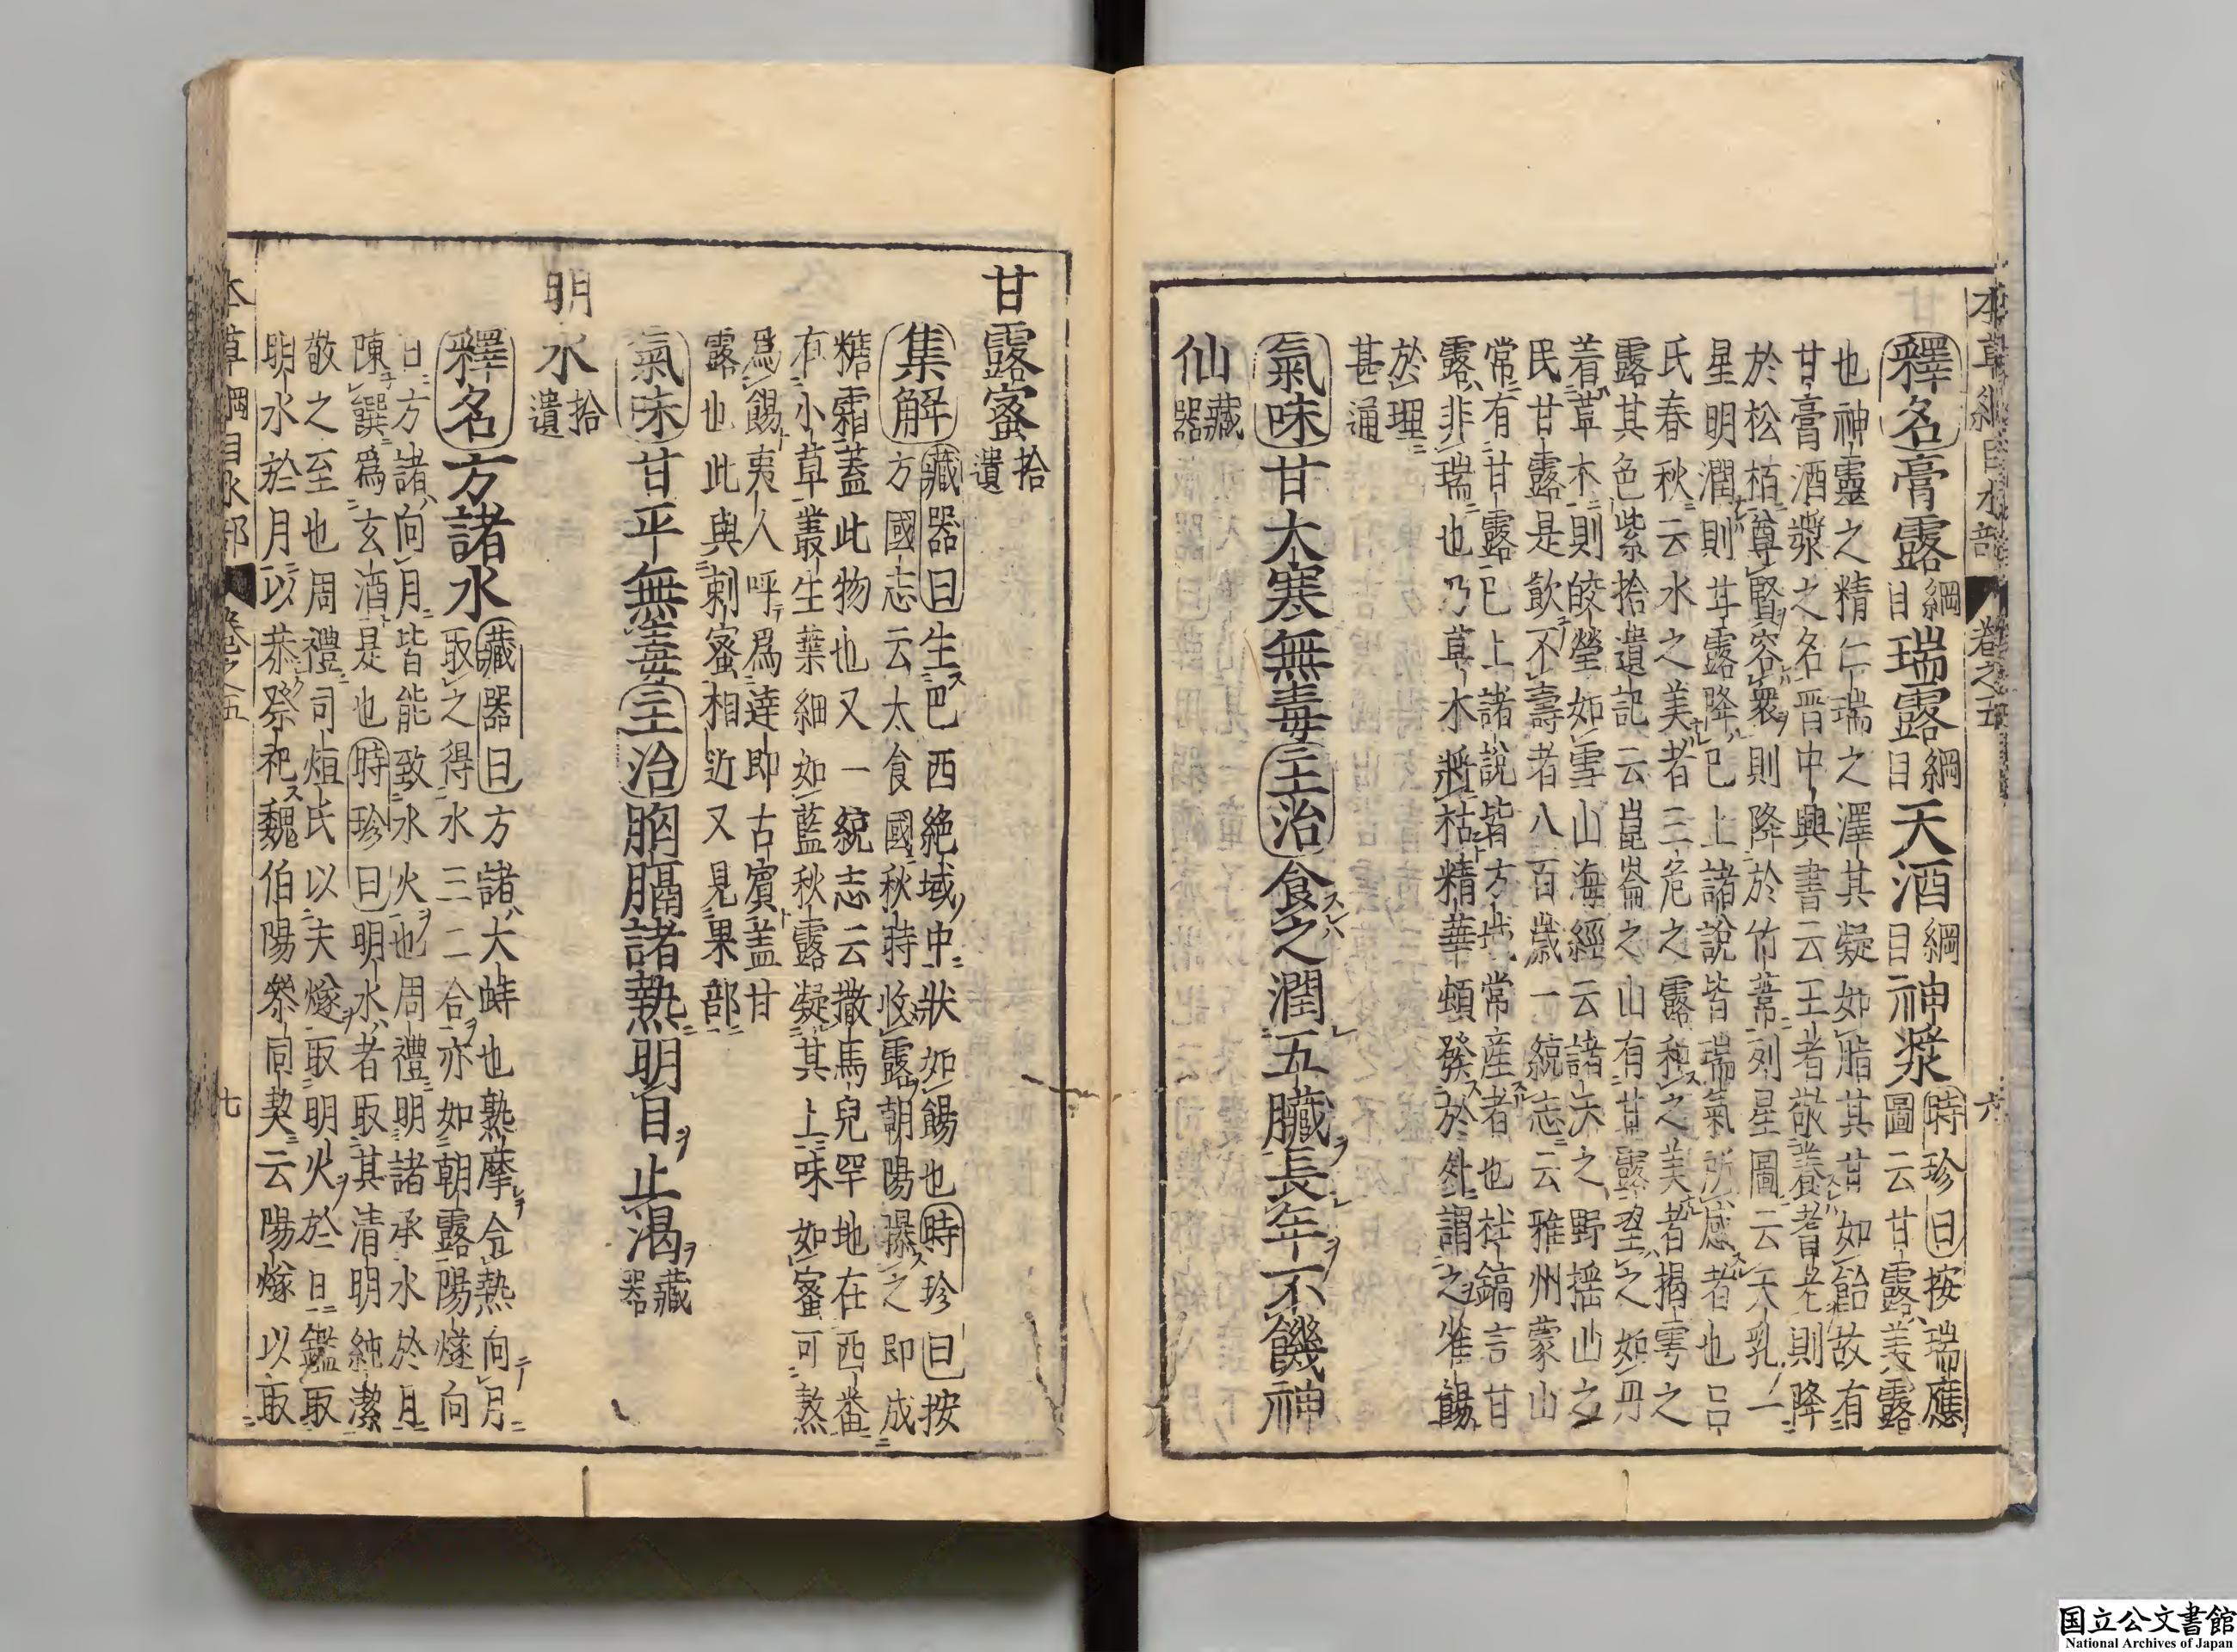 本草綱目水部 卷之五 六
釋名膏露綱目瑞露綱目天酒綱目神漿時珍曰按瑞應圖云甘露美露
也神靈之精仁瑞之澤其凝如脂其甘如飴故有
甘膏酒漿之名晉中興書云王者敬養耆老則降
於松栢尊賢容衆則降於竹葦列星圖云天乳一
星明潤則甘露降已上諸說皆瑞氣所感者也呂
氏春秋云水之美者三危之露和之美者揭雩之
露其色紫拾遺記云崑崙之山有甘露望之如丹
着草木則皎瑩如雪山海經云諸沃之野搖山之
民甘露是飲不壽者八百歲一統志云雅州蒙山
常有甘露已上諸說皆方域常産者也杜鎬言甘
露非瑞也乃草木將枯精華頓發於外謂之雀餳
於理甚通
氣味甘大寒無毒主治食之潤五臟長年不饑神
仙藏器
甘露蜜拾遺
集解藏器曰生巴西絶域中狀如餳也時珍曰按
方國志云太食國秋時收露朝陽曝之即成
糖霜蓋此物也又一統志云撒馬兒罕地在西番
有小草叢生葉細如藍秋露凝其上味如蜜可熬
爲餳夷人呼爲達即古賓蓋甘
露也此與刺蜜相近又見果部
氣味甘平無毒主治胸膈諸熱明目止渴藏器
明水拾遺
釋名方諸水藏器曰方諸大蚌也熟摩令熱向月
取之得水三二合亦如朝露陽燧向
日方諸向月皆能致水火也周禮明諸承水於月
陳饌爲玄酒是也時珍曰明水者取其清明純潔
敬之至也周禮司烜氏以夫燧取明火於日鑑取
明水於月以恭祭祀魏伯陽參同契云陽燧以取
本草綱目水部 卷之五 七
国立公文書館
National Archives of Japan